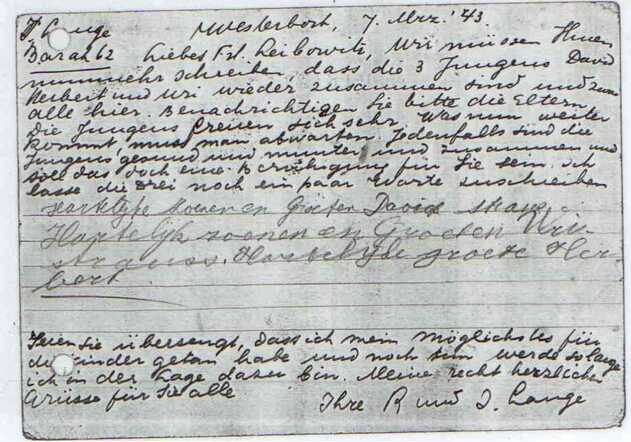 Lange Westerbork, 7. Mrz. '43
Barak 62 Liebes Frl. Leibowitz, Wir müssen Ihnen
nunmehr schreiben, dass die 3 Jungens David
Herbert und Uri wieder zusammen sind und zwar
alle hier. Benachrichtigen Sie bitte die Eltern
die Jungens freuen sich sehr. Was nun weiter
kommt, muss man abwarten. Jedenfalls sind die
Jungens gesund und munter und zusammen und
soll das doch eine Beruhigung für Sie sein. Ich
lasse die Drei noch ein paar Worte zuschreiben
Hartelijke en Groeten David
Hartelijk zoenen en Groeten Uri
Strauss. Hartelijke groete Her-
bert
Seien Sie überzeugt, dass ich mein möglichstes für
die Kinder getan habe und noch tun werde solange
ich in der Lage dazu bin. Meine recht herzlichen
Grüsse für Sie alle
Ihre R und J. Lange